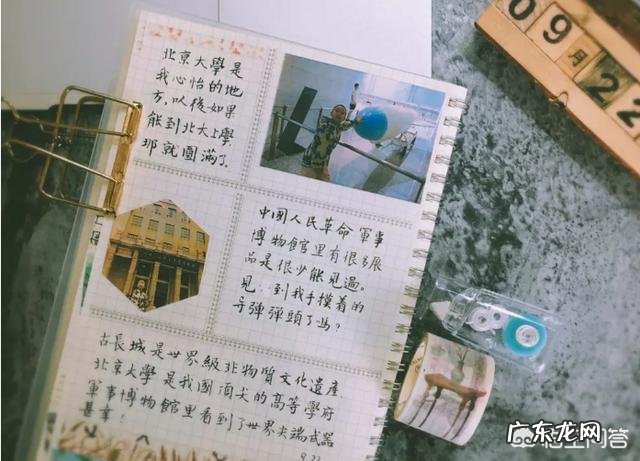 北京大學是
我心怡的地
方,以後如果
能到北大上學
那就圓滿了.
中國人民革命軍事
博物館里有很多展
品是很少能見過。
見:到我手摸着的
导弹弹頭了嗎?
古長城是世界級非物質文化遺産.
北京大學是我國頂尖的高等學府
軍事博物館里看到了世界尖端武器
甚幸!
9.22
09月22
悟空问答
广东龙网